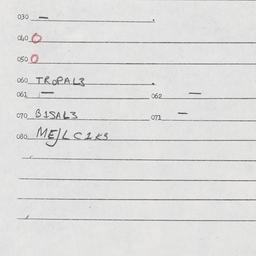 030 —
040 O
050 O
060 TROPAL3
061 — 062 —
070 BISAL3 071 —
080 MEJLC1K3